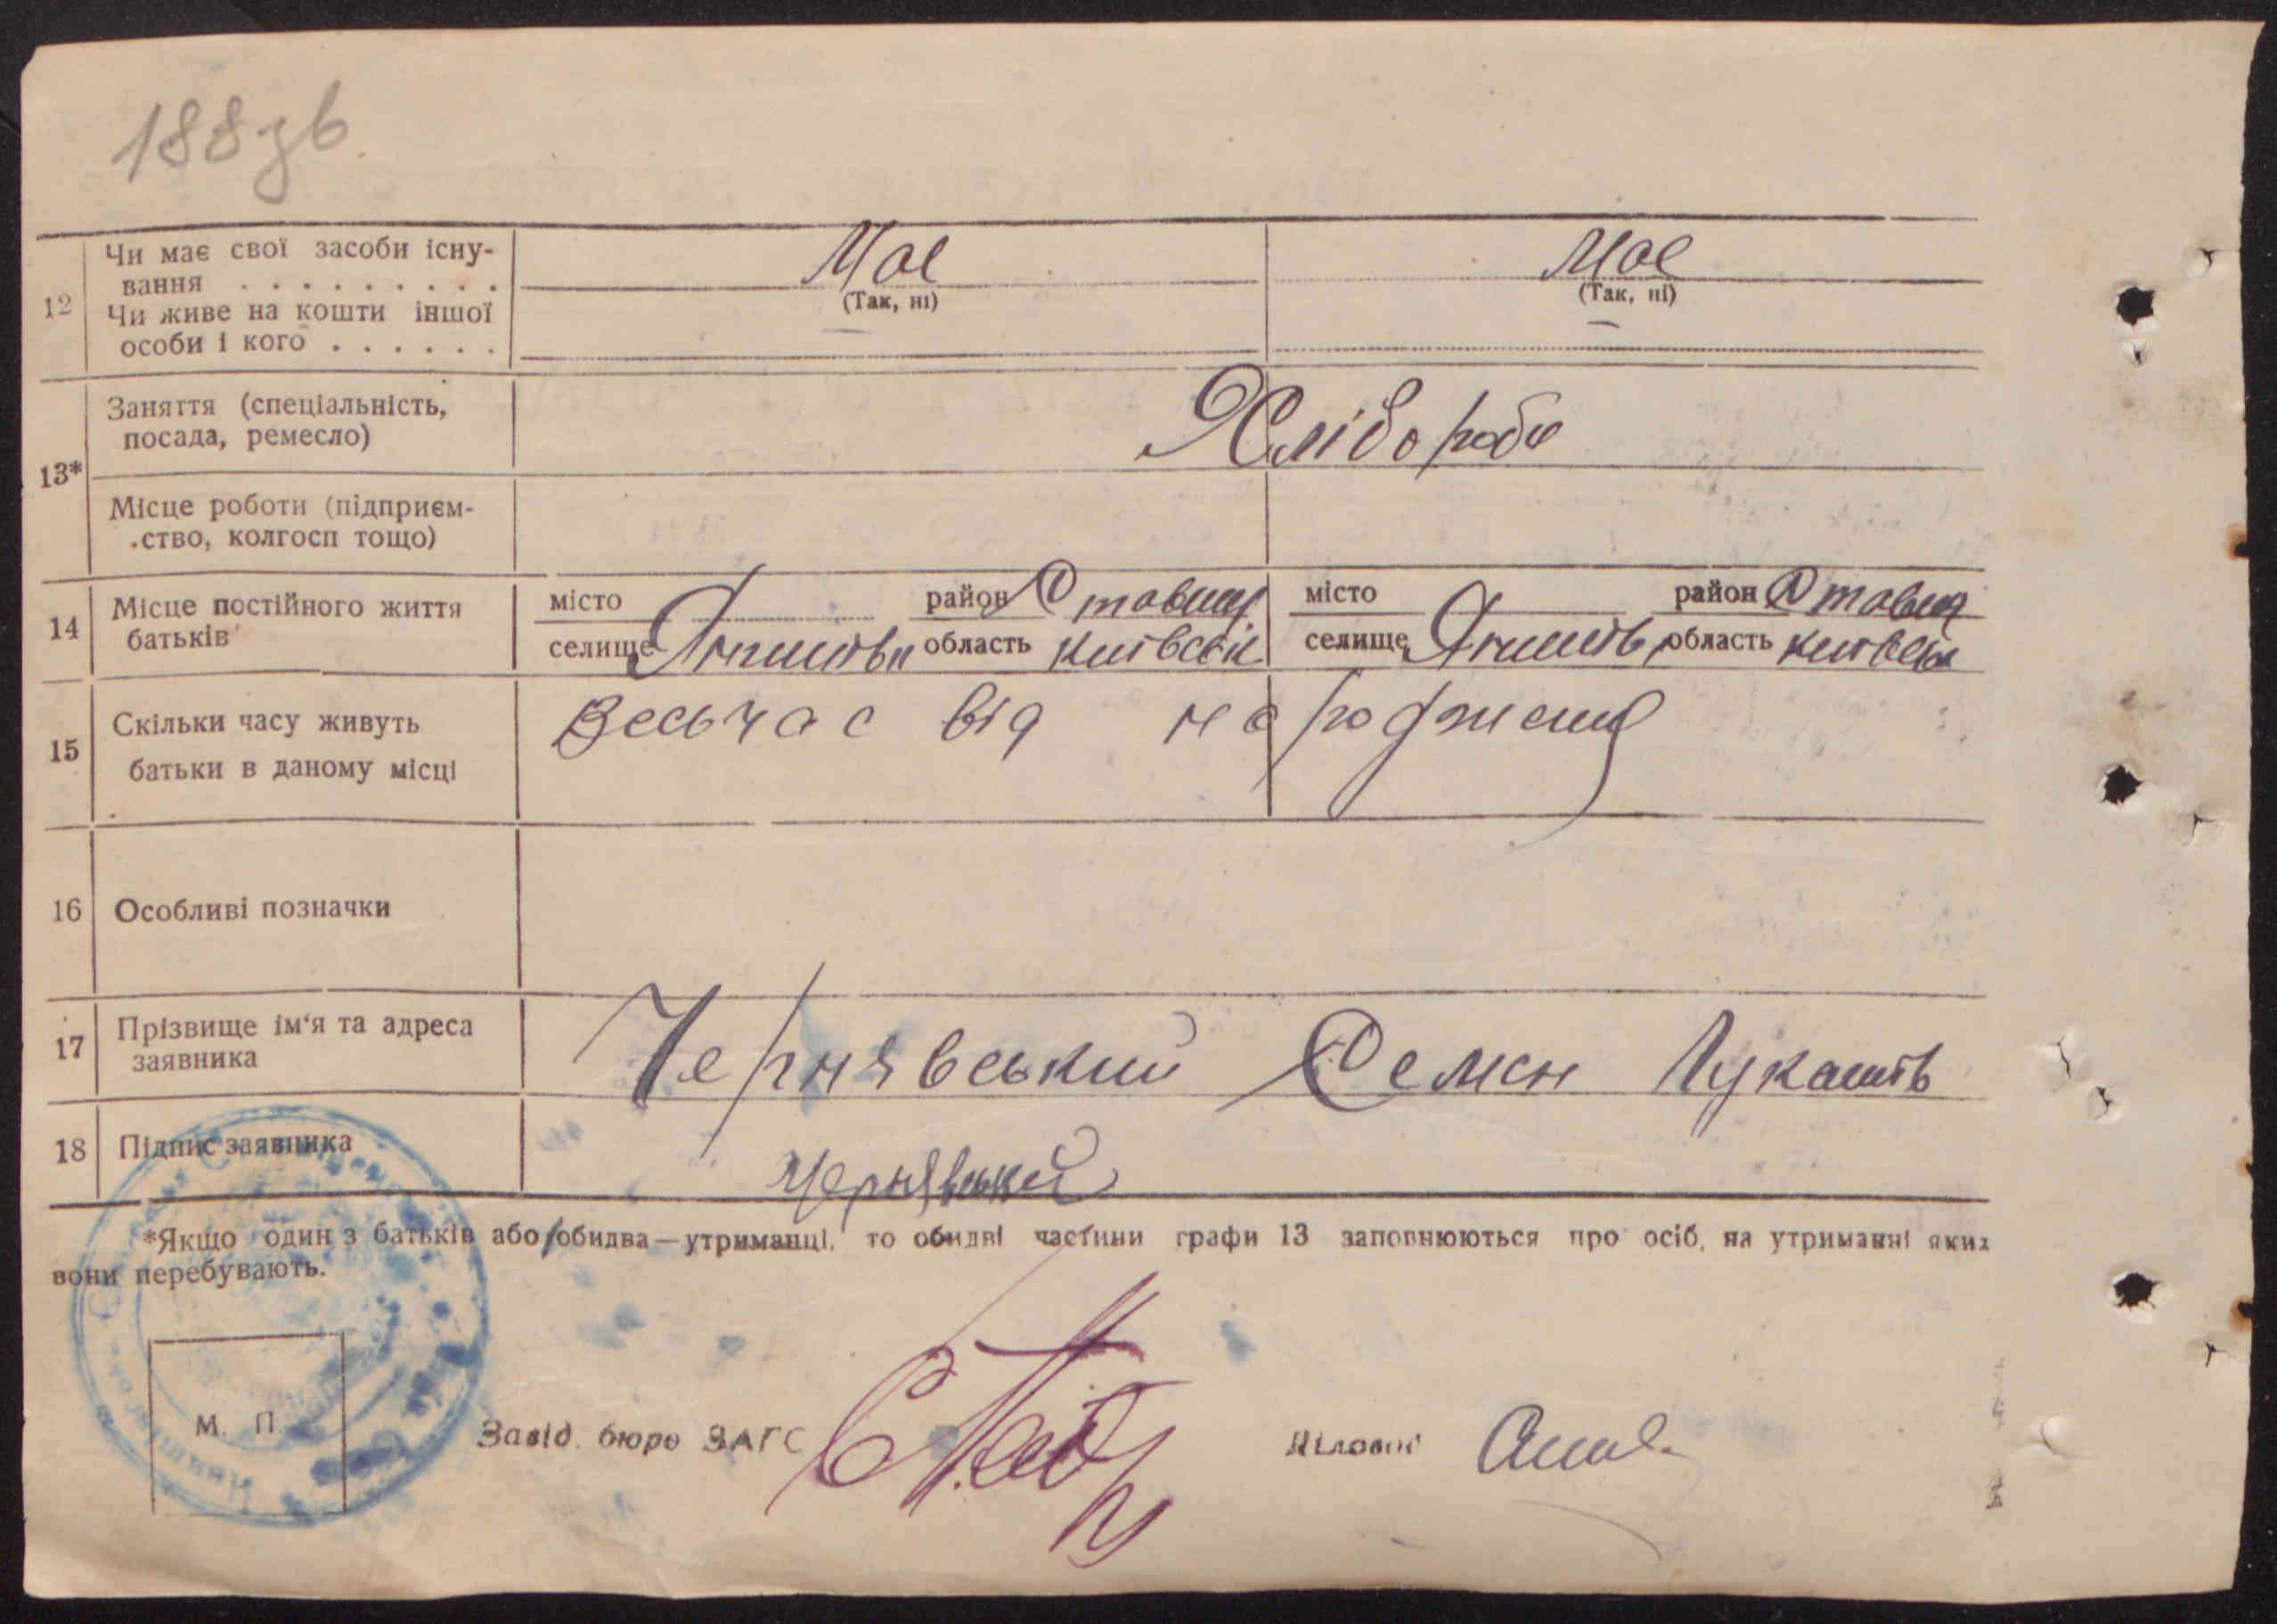 188зв
12 Чи має свої засоби існу-
вання . . . . . . . . . Має Має
(Так, ні) (Так, ні)
Чи живе на кошти іншої
особи і кого . . . . . . — —
13* Заняття (спеціальність,
посада, ремесло) Хлібороби
Місце роботи (підприєм-
ство, колгосп тощо)
14 Місце постійного життя
батьків
місто район Ставищ місто район Ставищ
селище область київськ селище область київськ
15 Скільки часу живуть
батьки в даному місці
Весь час від народження
16 Особливі позначки
17 Прізвище ім'я та адреса
заявника
Чернявський Семен Лукашів
18 Підпис заявника Чернявський
*Якщо один з батьків або обидва—утриманці, то обидві частини графи 13 заповнюються про осіб, на утриманні яких
вони перебувають.
М. П. Завід. бюро ЗАГС Діловод